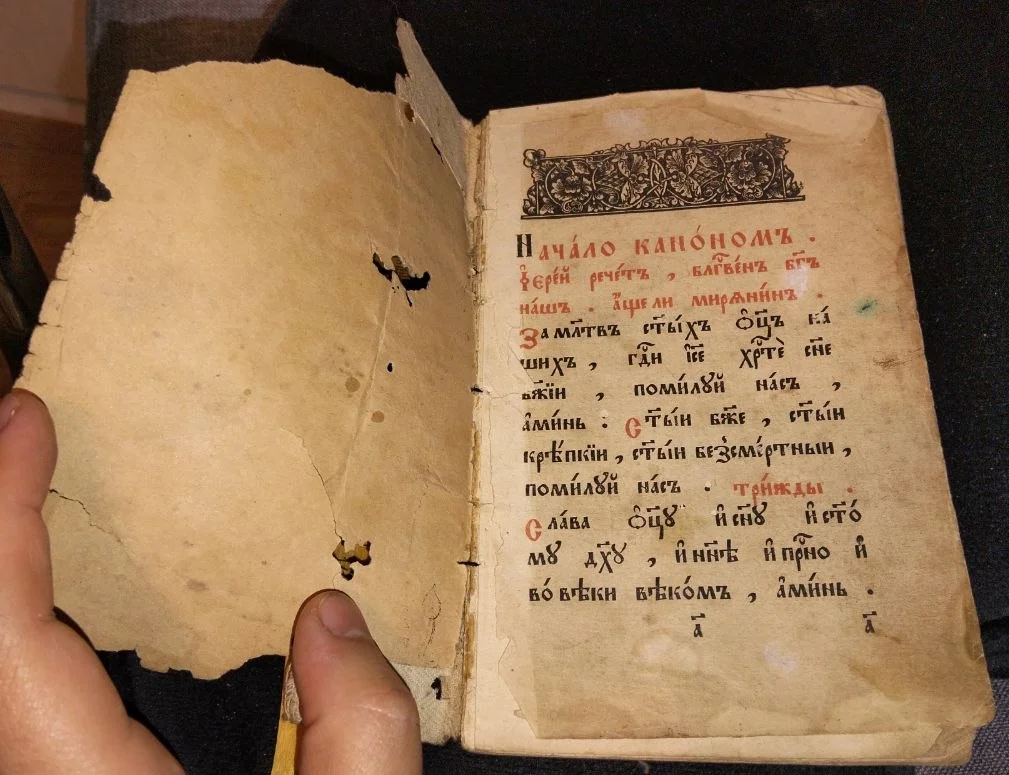 Нача́ло кано́номъ .
І҆ере́й рече́тъ , бл҃гве́нъ бг҃ъ
на́шъ . а҆́ще ли мирѧни́нъ .
За мл҃твъ ст҃ы́хъ ѻ҆ц҃ъ на́
шихъ , гд҃и і҆с҃е хрⷭ҇тѐ сн҃е
бж҃їи , поми́лꙋй на́съ ,
а҆ми́нь : Ст҃ы́и бж҃е , ст҃ы́и
крѣ́пкїи , ст҃ы́и безсме́ртныи ,
поми́лꙋй на́съ . три́жды .
Сла́ва ѻ҆ц҃ꙋ и҆ сн҃ꙋ и҆ ст҃о́
мꙋ дх҃ꙋ , и҆ нн҃ѣ и҆ прⷭ҇но и҆
во́ вѣки вѣко́мъ , а҆ми́нь .
а҃ а҃